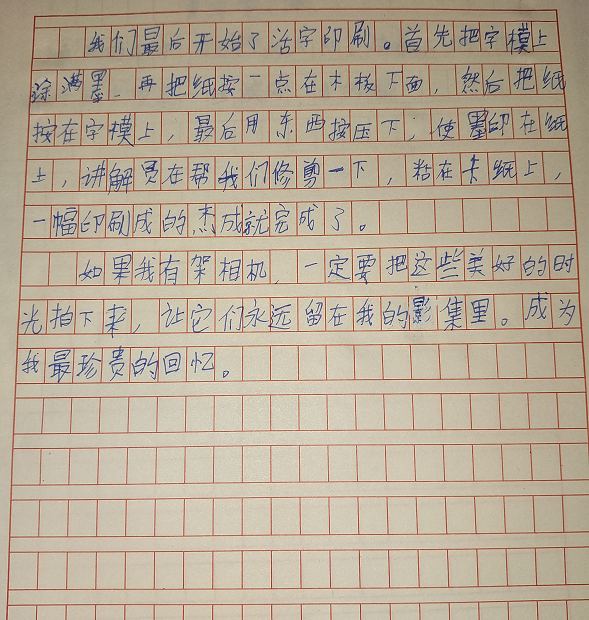 我们最后开始了活字印刷。首先把字模上
涂满墨、再把纸按一点在木板下面，然后把纸
按在字模上，最后用东西按压下，使墨印在纸
上，讲解员在帮我们修剪一下，粘在卡纸上，
一幅印刷成的杰成就完成了。
如果我有架相机，一定要把这些美好的时
光拍下来，让它们永远留在我的影集里。成为
我最珍贵的回忆。